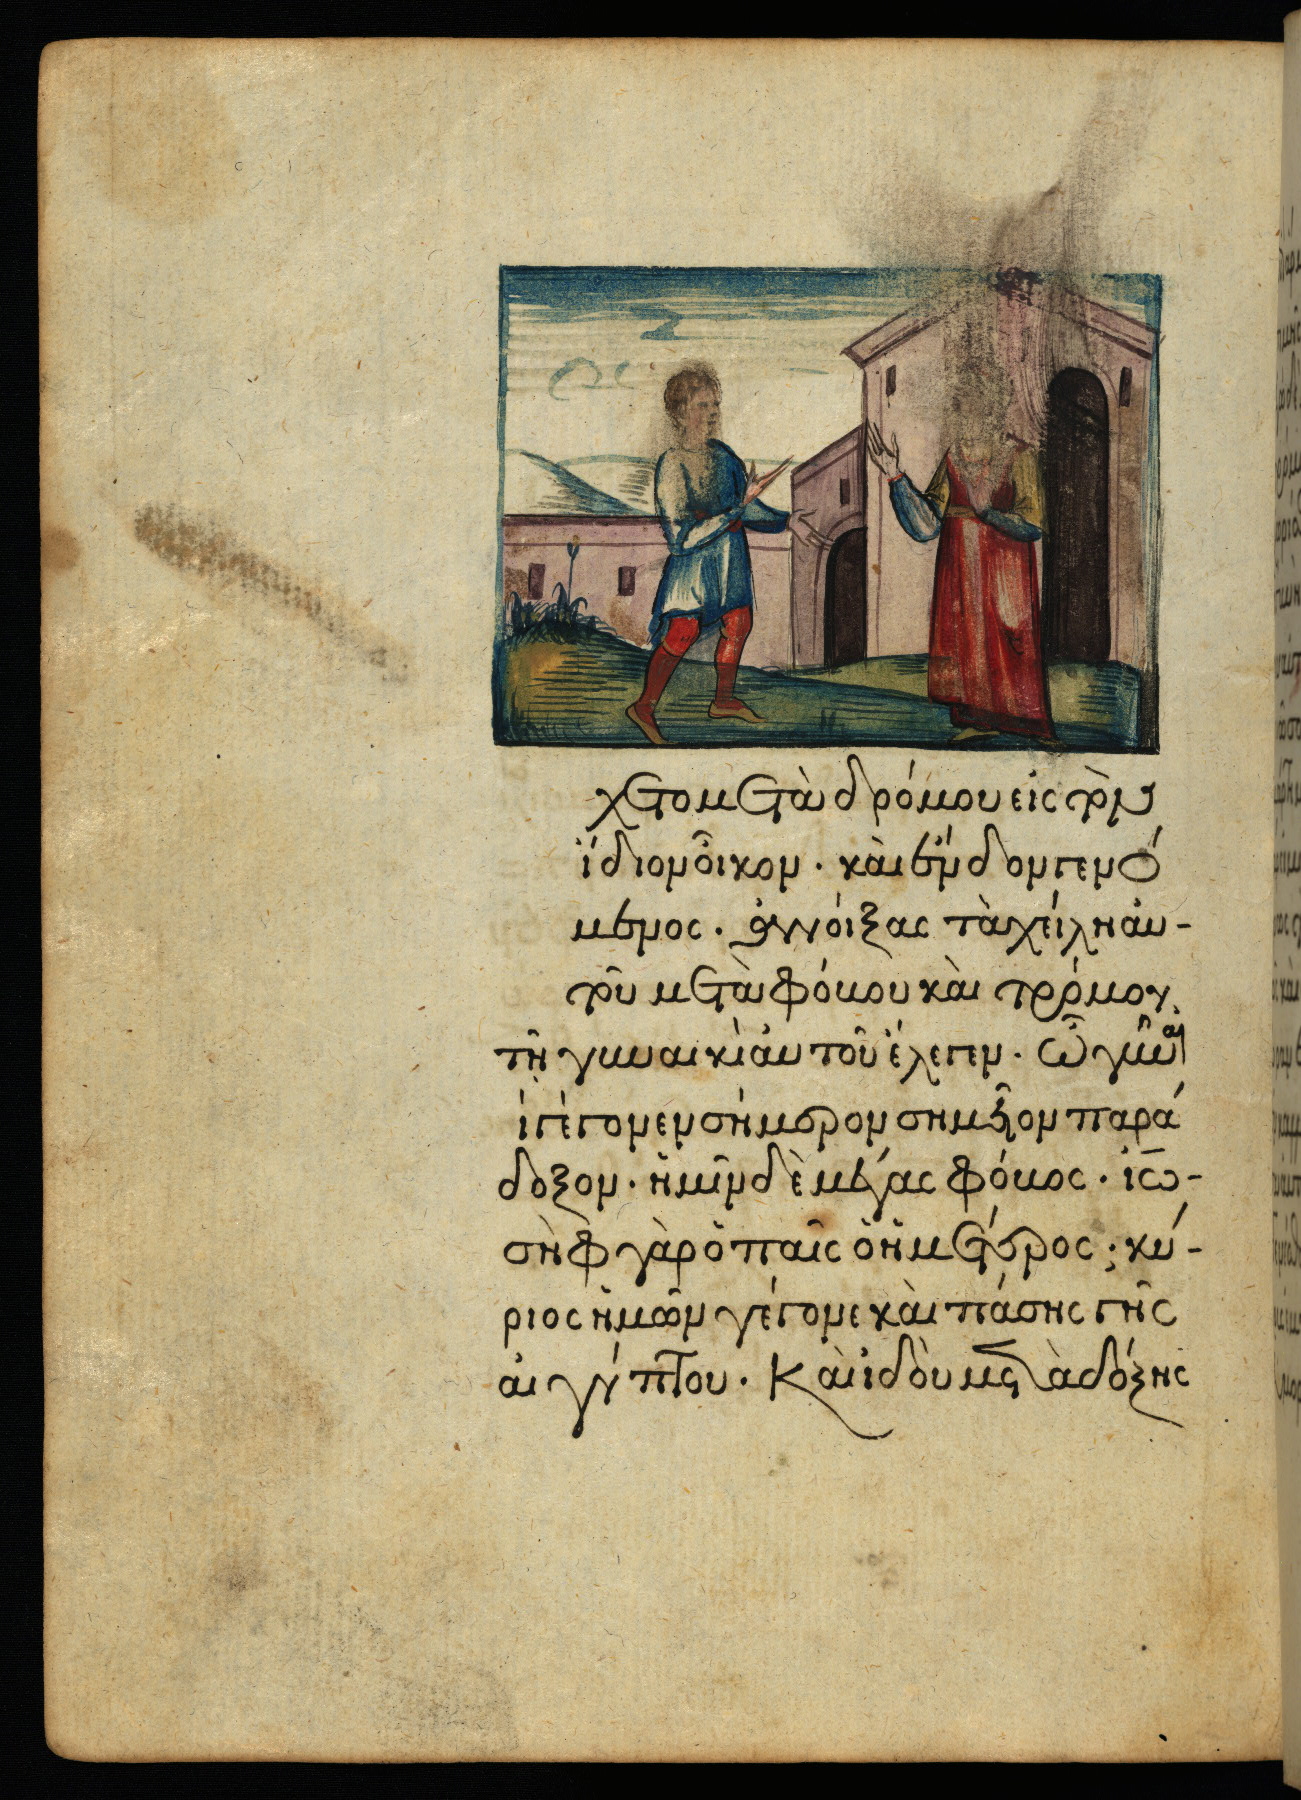 χετο μετὰ δρόμου εἰς τὸν
ἴδιον οἶκον · καὶ ἔνδον γενό
μενος · ἀνοίξας τὰ χείλη αὐ-
τοῦ μετὰ φόβου καὶ τρόμου,
τῇ γυναικὶ αὐτοῦ ἔλεγεν · ὦ γῦναι
γέγονεν σήμερον σημεῖον παρά
δοξον · ἡμῖν δὲ μέγας φόβος · ἰω-
σὴφ γὰρ ὁ παῖς ὁ ἡμέτερος · κύ-
ριος ἡμῶν γέγονε καὶ πάσης γῆς
αἰγύπτου · Καὶ ἰδοὺ μετὰ δόξης